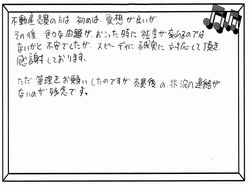 不動産売買の方は 初めは 愛想が良いが
その後 色々な問題が おこった時に 態度が変わるのでは
ないかと不安でしたが スピーディに誠実に対応して頂き
感謝しております。
ただ 管理をお願いしたのですが 売買後の状況の連絡が
ないのが残念です。